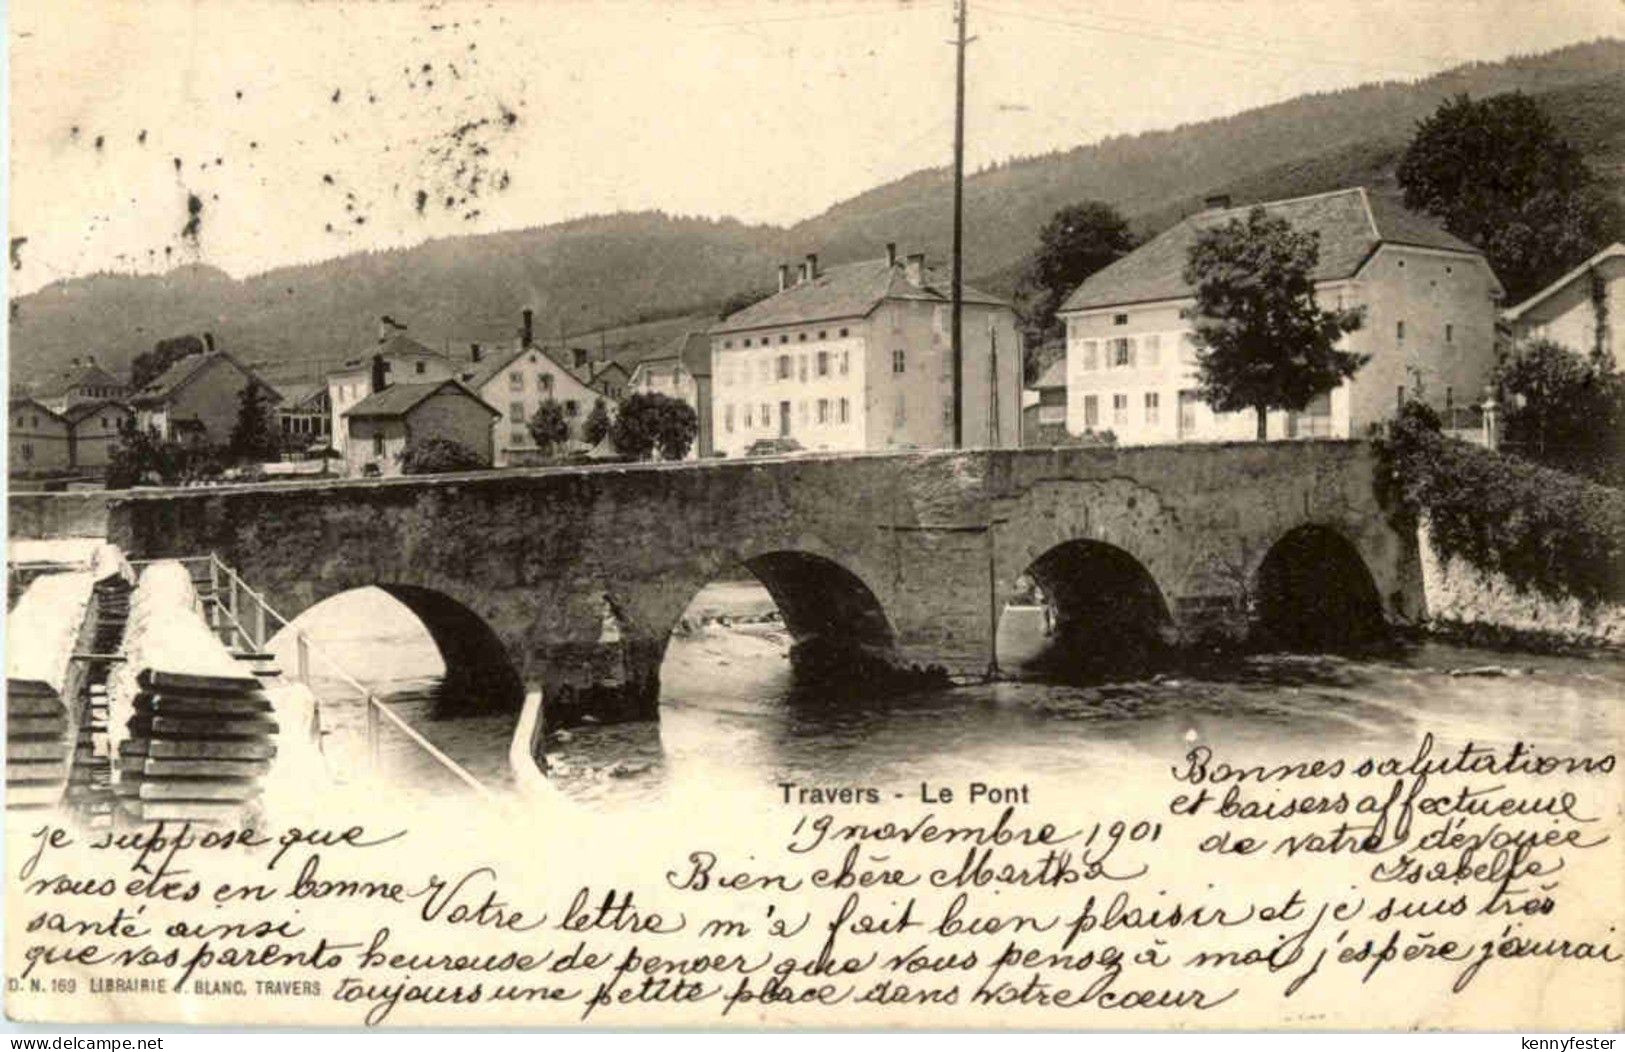 Travers - Le Pont
19 novembre 1901
Bien chère Martha
Votre lettre m'a fait bien plaisir et je suis très
heureuse de penser que vous pensez à moi j'espère j'aurai
toujours une petite place dans votre cœur
je suppose que
vous êtes en bonne
santé ainsi
que vos parents
Bonnes salutations
et baisers affectueuse
de votre dévouée
Isabelle
D. N. 169 LIBRAIRIE J. BLANC, TRAVERS
https://www.delcampe.net
kennyfester